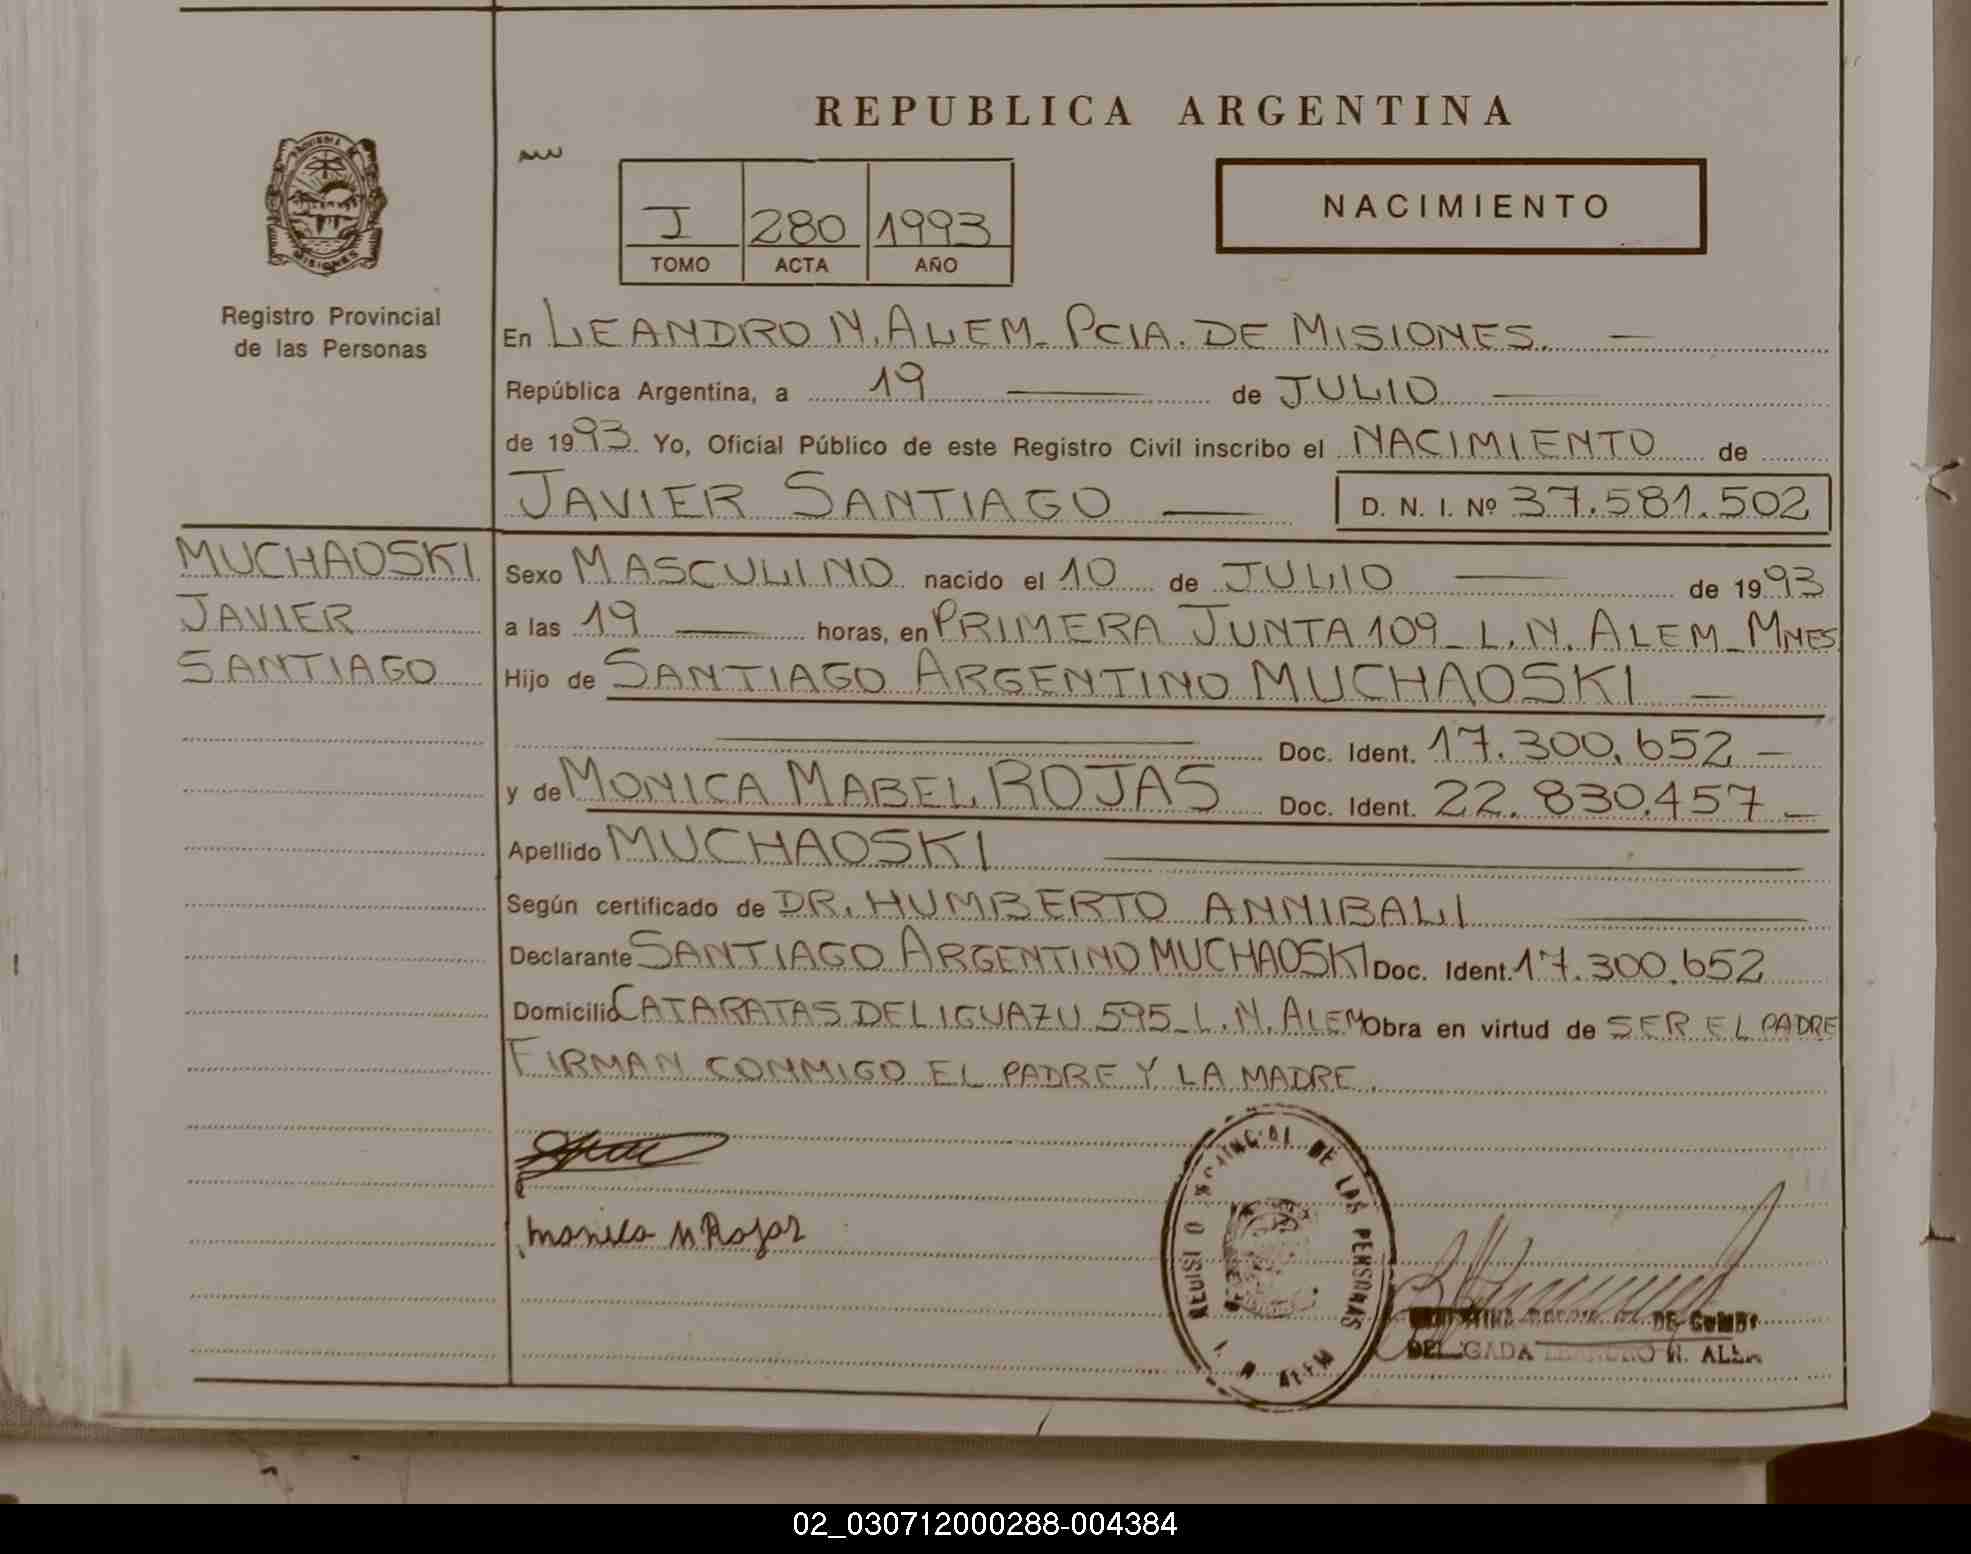 REPUBLICA ARGENTINA
NACIMIENTO
I 280 1993
TOMO ACTA AÑO
MISIONES
Registro Provincial
de las Personas
En LEANDRO N. ALEM - PCIA. DE MISIONES. —
República Argentina, a 19 — de JULIO —
de 1993 Yo, Oficial Público de este Registro Civil inscribo el NACIMIENTO de
JAVIER SANTIAGO — D. N. I. Nº 37.581.502
MUCHAOSKI
JAVIER
SANTIAGO
Sexo MASCULINO nacido el 10 de JULIO — de 1993
a las 19 — horas, en PRIMERA JUNTA 109 - L.N. ALEM - MNES
Hijo de SANTIAGO ARGENTINO MUCHAOSKI —
— Doc. Ident. 17.300.652 —
y de MONICA MABEL ROJAS Doc. Ident. 22.830.457 —
Apellido MUCHAOSKI —
Según certificado de DR. HUMBERTO ANNIBALI —
Declarante SANTIAGO ARGENTINO MUCHAOSKI Doc. Ident. 17.300.652
Domicilio CATARATAS DEL IGUAZU 595 - L.N. ALEM Obra en virtud de SER EL PADRE
FIRMAN CONMIGO EL PADRE Y LA MADRE.
Monica M Rojas
DE LAS PERSONAS
ALEM
02_030712000288-004384